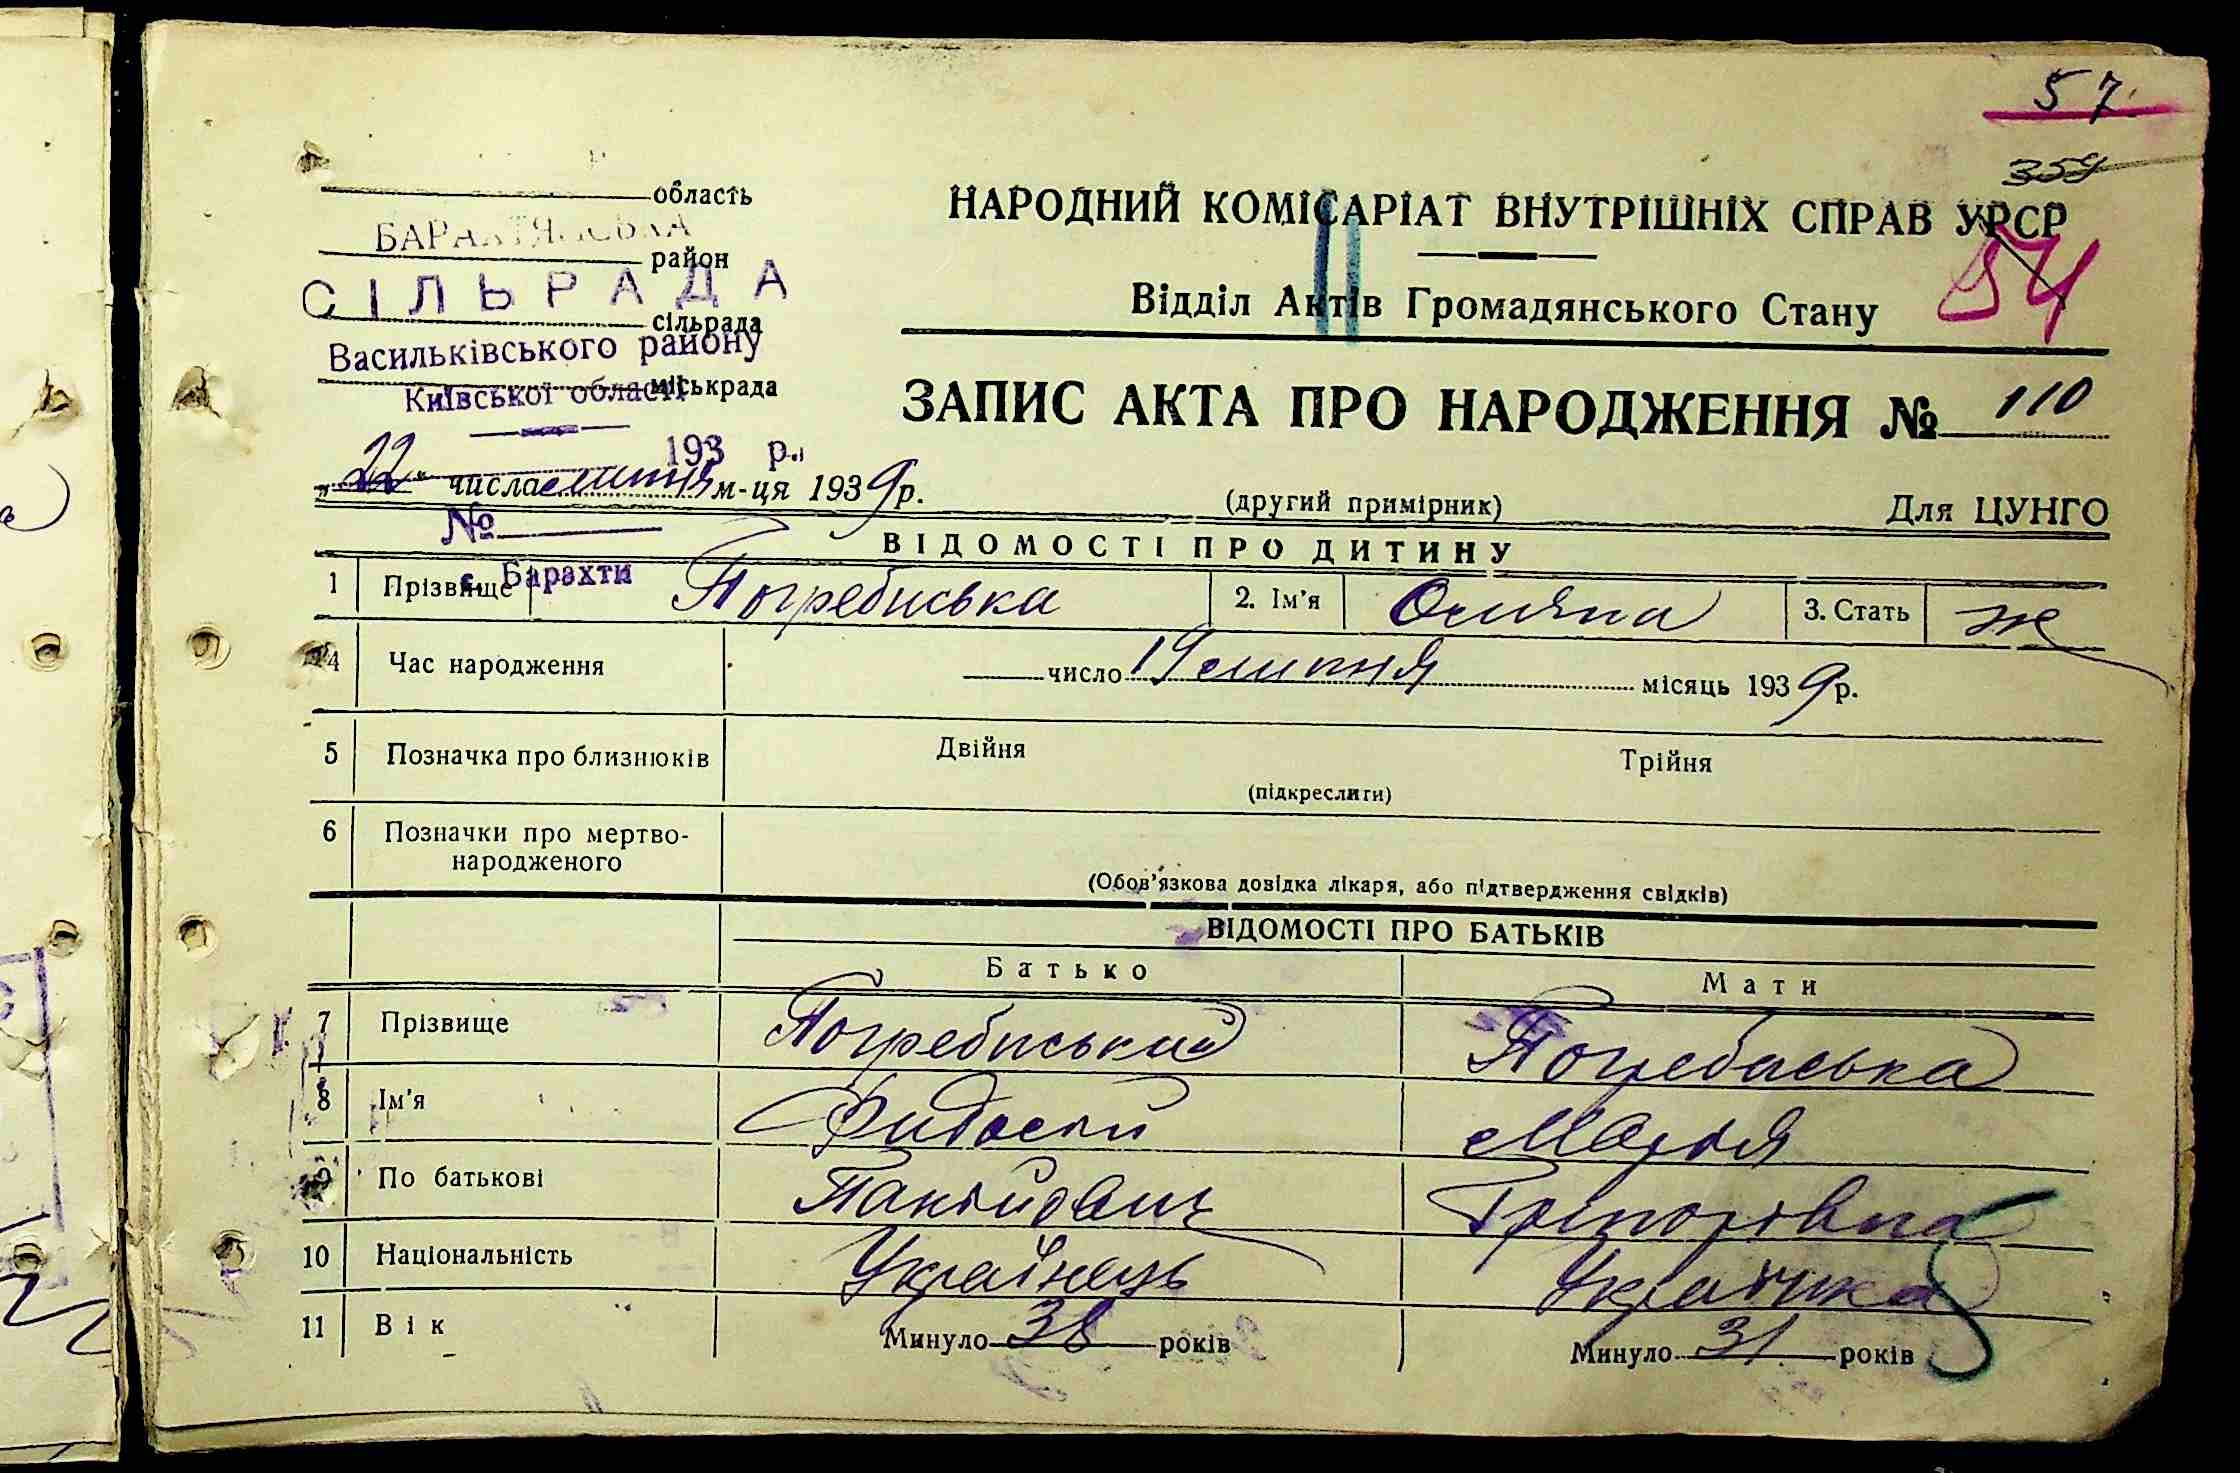 57
359
54
область
БАРАХТЯНСЬКА
район
СІЛЬРАДА
сільрада
Васильківського району
міськрада
Київської області
193 р.
"22" числа липня м-ця 1939 р.
№
с. Барахти
НАРОДНИЙ КОМІСАРІАТ ВНУТРІШНІХ СПРАВ УРСР
Відділ Актів Громадянського Стану
ЗАПИС АКТА ПРО НАРОДЖЕННЯ № 110
(другий примірник) Для ЦУНГО
ВІДОМОСТІ ПРО ДИТИНУ
1 Прізвище Погребиська 2. Ім'я 3. Стать ж
4 Час народження число 19 липня місяць 1939 р.
5 Позначка про близнюків Двійня Трійня
(підкреслити)
6 Позначки про мертво-
народженого
(Обов'язкова довідка лікаря, або підтвердження свідків)
ВІДОМОСТІ ПРО БАТЬКІВ
Батько Мати
7 Прізвище Погребиський Погребиська
8 Ім'я Марія
9 По батькові Григорівна
10 Національність Українець Українка
11 Вік Минуло 38 років Минуло 31 років